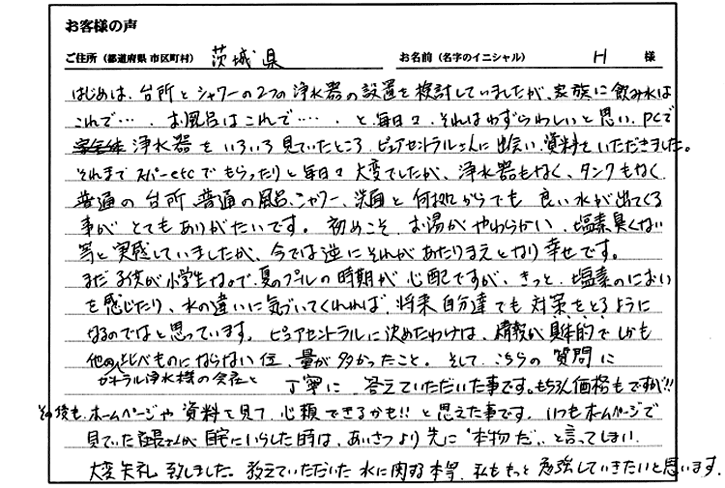 お客様の声
ご住所（都道府県 市区町村） 茨城県 お名前（名字のイニシャル） H 様
はじめは、台所とシャワーの2つの浄水器の設置を検討していましたが、家族に飲み水は
これで…、お風呂はこれで……、と毎日々、それはわずらわしいと思い、PCで
浄水器をいろいろ見ていたところ、ピュアセントラルさんに出会い、資料をいただきました。
それまでスーパーetcでもらったりと毎日々大変でしたが、浄水器もなく、タンクもなく
普通の台所、普通の風呂、シャワー、洗面と何処からでも良い水が出てくる
事がとてもありがたいです。初めこそ、お湯がやわらかい、塩素臭くない
等と実感していましたが、今では逆にそれがあたりまえとなり幸せです。
まだ子供が小学生なので、夏のプールの時期が心配ですが、きっと、塩素のにおい
を感じたり、水の違いに気づいてくれれば、将来自分達でも対策をとるように
なるのではと思っています。ピュアセントラルに決めたわけは、情報が具体的でしかも
他のセントラル浄水機の会社と比べものにならない位、量が多かったこと。そして、こちらの質問に
丁寧に、答えていただいた事です。もちろん価格もですが!!
その後も、ホームページや資料を見て、心頼できるかも!!と思えた事です。いつもホームページで
見ていた社長さんが自宅にいらした時は、あいさつより先に“本物だ〟と言ってしまい
大変失礼致しました。教えていただいた水に関する本等、私ももっと勉強していきたいと思います。